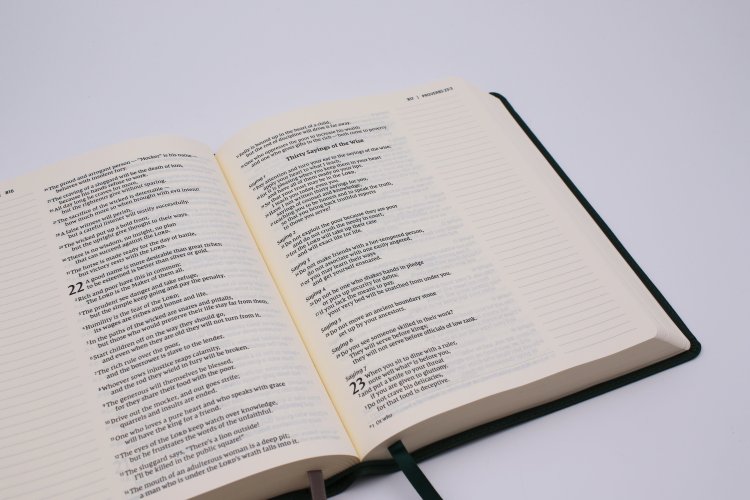 816
24 The proud and arrogant person — "Mocker" is his name —
behaves with insolent fury.
25 The craving of a sluggard will be the death of him,
because his hands refuse to work.
26 All day long he craves for more,
but the righteous give without sparing.
27 The sacrifice of the wicked is detestable —
how much more so when brought with evil intent!
28 A false witness will perish,
but a careful listener will testify successfully.
29 The wicked put up a bold front,
but the upright give thought to their ways.
30 There is no wisdom, no insight, no plan
that can succeed against the LORD.
31 The horse is made ready for the day of battle,
but victory rests with the LORD.
22 A good name is more desirable than great riches;
to be esteemed is better than silver or gold.
2 Rich and poor have this in common:
The LORD is the Maker of them all.
3 The prudent see danger and take refuge,
but the simple keep going and pay the penalty.
4 Humility is the fear of the LORD;
its wages are riches and honor and life.
5 In the paths of the wicked are snares and pitfalls,
but those who would preserve their life stay far from them.
6 Start children off on the way they should go,
and even when they are old they will not turn from it.
7 The rich rule over the poor,
and the borrower is slave to the lender.
8 Whoever sows injustice reaps calamity,
and the rod they wield in fury will be broken.
9 The generous will themselves be blessed,
for they share their food with the poor.
10 Drive out the mocker, and out goes strife;
quarrels and insults are ended.
11 One who loves a pure heart and who speaks with grace
will have the king for a friend.
12 The eyes of the LORD keep watch over knowledge,
but he frustrates the words of the unfaithful.
13 The sluggard says, "There's a lion outside!
I'll be killed in the public square!"
14 The mouth of an adulterous woman is a deep pit;
a man who is under the LORD's wrath falls into it.
817 | PROVERBS 23:3
15 Folly is bound up in the heart of a child,
but the rod of discipline will drive it far away.
16 One who oppresses the poor to increase his wealth
and one who gives gifts to the rich — both come to poverty.
Thirty Sayings of the Wise
Saying 1
17 Pay attention and turn your ear to the sayings of the wise;
apply your heart to what I teach,
18 for it is pleasing when you keep them in your heart
and have all of them ready on your lips.
19 So that your trust may be in the LORD,
I teach you today, even you.
20 Have I not written thirty sayings for you,
sayings of counsel and knowledge,
21 teaching you to be honest and to speak the truth,
so that you bring back truthful reports
to those you serve?
Saying 2
22 Do not exploit the poor because they are poor
and do not crush the needy in court,
23 for the LORD will take up their case
and will exact life for life.
Saying 3
24 Do not make friends with a hot-tempered person,
do not associate with one easily angered,
25 or you may learn their ways
and get yourself ensnared.
Saying 4
26 Do not be one who shakes hands in pledge
or puts up security for debts;
27 if you lack the means to pay,
your very bed will be snatched from under you.
Saying 5
28 Do not move an ancient boundary stone
set up by your ancestors.
Saying 6
29 Do you see someone skilled in their work?
They will serve before kings;
they will not serve before officials of low rank.
Saying 7
23 When you sit to dine with a ruler,
note well what is before you,
2 and put a knife to your throat
if you are given to gluttony.
3 Do not crave his delicacies,
for that food is deceptive.
1 Or who